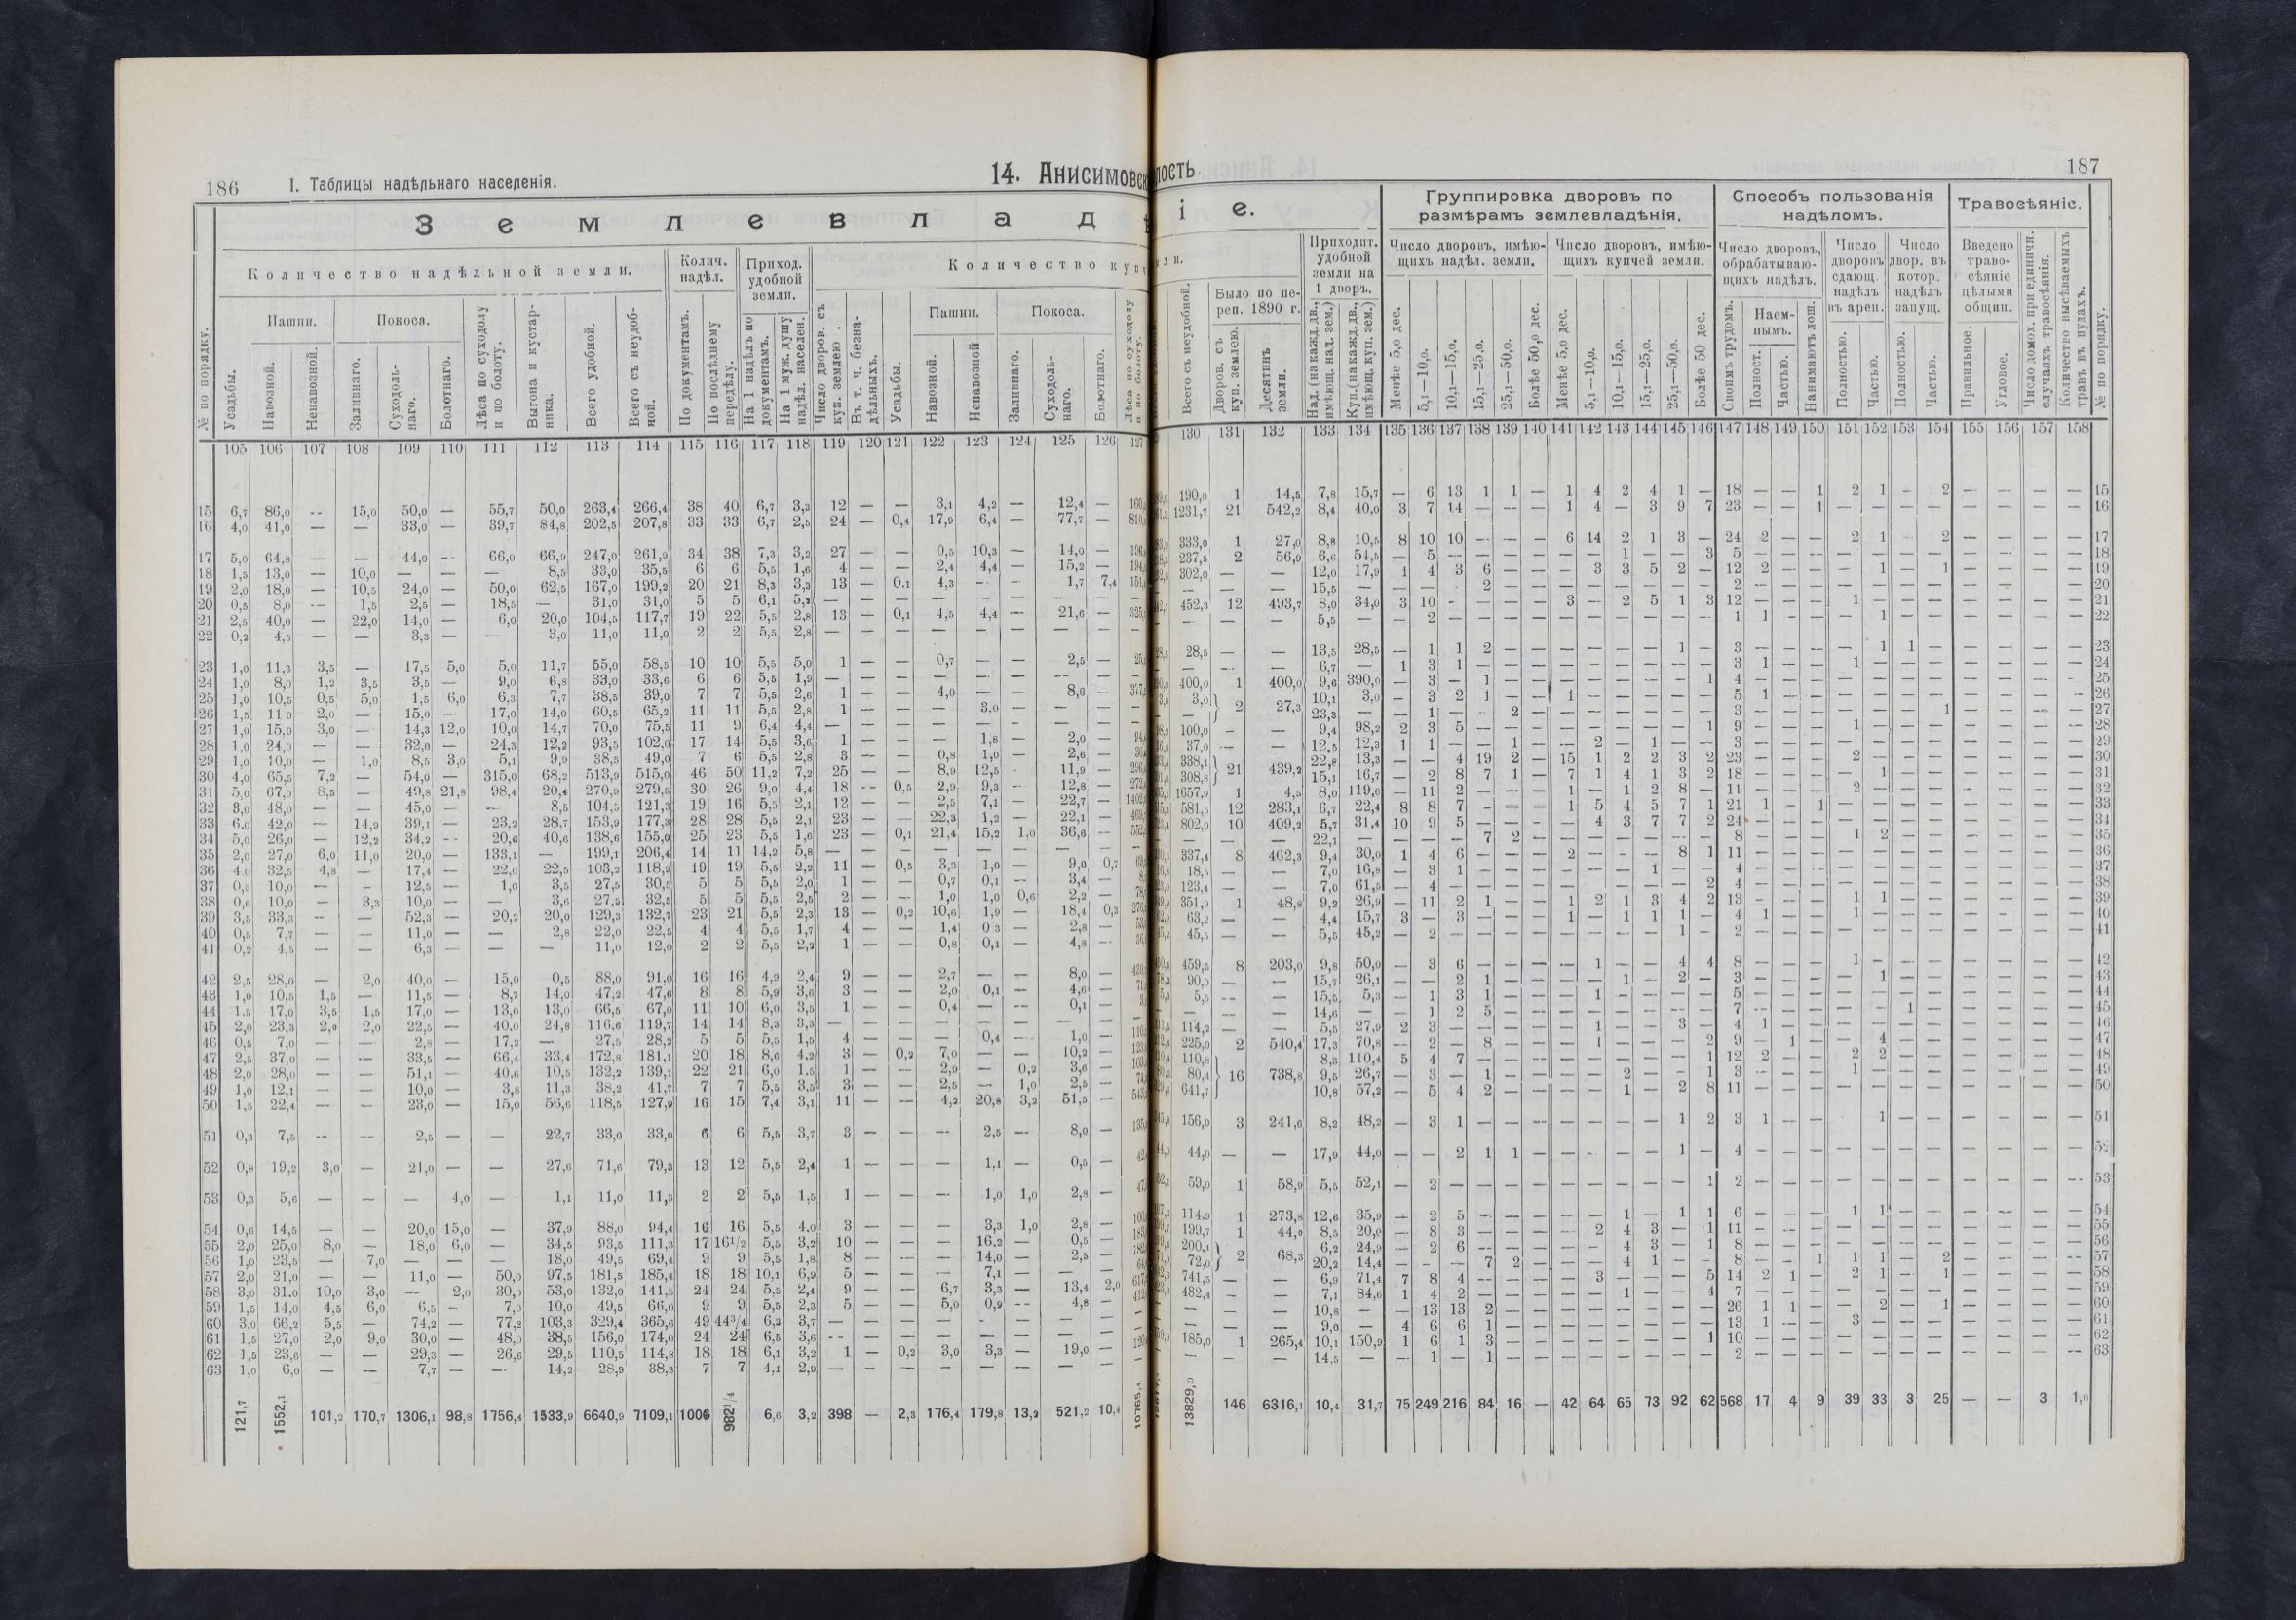 186 I. Таблицы надѣльнаго населенія.
14. Анисимовск
З е м л е в л а д
Количество надѣльной земли.
Колич. надѣл.
Приход. удобной земли.
Количество куп
Пашни.
Покоса.
Пашни.
Покоса.
№ по порядку.
Усадьбы.
Навозной.
Ненавозной.
Заливнаго.
Суходоль-
наго.
Болотнаго.
Лѣса по суходолу
и по болоту.
Выгона и кустар-
ника.
Всего удобной.
Всего съ неудоб-
ной.
По документамъ.
По послѣднему
передѣлу.
На 1 надѣлъ по
документамъ.
На 1 муж. душу
надѣл. населен.
Число дворов. съ
куп. землею.
Въ т. ч. безна-
дѣльныхъ.
Усадьбы.
Навозной.
Ненавозной
Заливнаго.
Суходоль-
наго.
Болотнаго.
Лѣса по суходолу
и по болоту.
105 106 107 108 109 110 111 112 113 114 115 116 117 118 119 120 121 122 123 124 125 126 127
15 6,7 86,0 -- 15,0 50,0 — 55,7 50,0 263,4 266,4 38 40 6,7 3,3 12 — — 3,1 4,2 — 12,4 —
16 4,0 41,0 — — 33,0 — 39,7 84,8 202,5 207,8 33 33 6,7 2,5 24 — 0,4 17,9 6,4 — 77,7 —
17 5,0 64,8 — — 44,0 — 66,0 66,9 247,0 261,9 34 38 7,3 3,2 27 — — 0,5 10,3 — 14,0 —
18 1,5 13,0 — 10,0 — — — 8,5 33,0 35,5 6 6 5,5 1,6 4 — — 2,4 4,4 — 15,2 —
19 2,0 18,0 — 10,5 24,0 — 50,0 62,5 167,0 199,2 20 21 8,3 3,3 13 — 0,1 4,3 — - 1,7 7,4
20 0,5 8,0 -- 1,5 2,5 — 18,5 — 31,0 31,0 5 5 6,1 5,2 — — — — — — — —
21 2,5 40,0 — 22,0 14,0 — 6,0 20,0 104,5 117,7 19 22 5,5 2,8 13 — 0,1 4,5 4,4 — 21,6 —
22 0,2 4,5 — — 3,3 — — 3,0 11,0 11,0 2 2 5,5 2,8 — — — — — — — —
23 1,0 11,3 3,5 — 17,5 5,0 5,0 11,7 55,0 58,5 10 10 5,5 5,0 1 — — 0,7 — — 2,5 —
24 1,0 8,0 1,2 3,5 3,5 — 9,0 6,8 33,0 33,6 6 6 5,5 1,9 — — — — — — — —
25 1,0 10,5 0,5 5,0 1,5 6,0 6,3 7,7 38,5 39,0 7 7 5,5 2,6 1 — — 4,0 — — 8,6 —
26 1,5 11 0 2,0 — 15,0 — 17,0 14,0 60,5 65,2 11 11 5,5 2,8 1 — — — 3,0 — — —
27 1,0 15,0 3,0 — 14,3 12,0 10,0 14,7 70,0 75,5 11 9 6,4 4,4 — — — — — — — —
28 1,0 24,0 — — 32,0 — 24,3 12,2 93,5 102,0 17 14 5,5 3,6 1 — — — 1,8 — 2,0 —
29 1,0 10,0 — 1,0 8,5 3,0 5,1 9,9 38,5 49,0 7 6 5,5 2,8 3 — — 0,8 1,0 — 2,6 —
30 4,0 65,5 7,2 — 54,0 — 315,0 68,2 513,9 515,0 46 50 11,2 7,2 25 — — 8,9 12,5 - 11,9 —
31 5,0 67,0 8,5 — 49,8 21,8 98,4 20,4 270,9 279,5 30 26 9,0 4,4 18 -- 0,5 2,9 9,3 — 12,8 —
32 3,0 48,0 — — 45,0 — -- 8,5 104,5 121,3 19 16 5,5 2,1 12 — — 2,5 7,1 — 22,7 —
33 6,0 42,0 — 14,9 39,1 — 23,2 28,7 153,9 177,3 28 28 5,5 2,1 23 — — 22,3 1,2 — 22,1 —
34 5,0 26,0 — 12,2 34,2 -- 20,6 40,6 138,6 155,0 25 23 5,5 1,6 23 — 0,1 21,4 15,2 1,0 36,6 —
35 2,0 27,0 6,0 11,0 20,0 — 133,1 — 199,1 206,4 14 11 14,2 5,8 — — — — — — — —
36 4,0 32,5 4,8 — 17,4 — 22,0 22,5 103,2 118,9 19 19 5,5 2,2 11 — 0,5 3,3 1,0 — 9,0 0,7
37 0,5 10,0 — - 12,5 — 1,0 3,5 27,5 30,5 5 5 5,5 2,0 1 — — 0,7 0,1 — 3,4 —
38 0,6 10,0 — 3,3 10,0 — — 3,6 27,5 32,5 5 5 5,5 2,5 2 — — 1,0 1,0 0,6 2,2 —
39 3,5 33,3 -- — 52,3 — 20,2 20,0 129,3 132,7 23 21 5,5 2,3 13 — 0,2 10,6 1,9 — 18,4 0,3
40 0,5 7,7 — — 11,0 — — 2,8 22,0 22,5 4 4 5,5 1,7 4 — — 1,4 0 3 — 2,8 —
41 0,2 4,5 — — 6,3 — — — 11,0 12,0 2 2 5,5 2,2 1 — — 0,8 0,1 — 4,8 —
42 2,5 28,0 — 2,0 40,0 — 15,0 0,5 88,0 91,0 16 16 4,9 2,4 9 — — 2,7 — — 8,0 —
43 1,0 10,5 1,5 — 11,5 — 8,7 14,0 47,2 47,6 8 8 5,9 3,6 3 — — 2,0 0,1 — 4,6 —
44 1,5 17,0 3,5 1,5 17,0 — 13,0 13,0 66,5 67,0 11 10 6,0 3,5 1 — — 0,4 — — 0,1 —
45 2,0 23,3 2,0 2,0 22,5 — 40,0 24,8 116,6 119,7 14 14 8,3 3,3 — — — — — — — —
46 0,5 7,0 — — 2,8 — 17,2 — 27,5 28,2 5 5 5,5 1,5 4 — — — 0,4 — 1,0 —
47 2,5 37,0 — — 33,5 — 66,4 33,4 172,8 181,1 20 18 8,6 4,2 3 — 0,2 7,0 — — 10,2 —
48 2,0 28,0 — — 51,1 — 40,6 10,5 132,2 139,1 22 21 6,0 1,5 1 — — 2,9 — 0,2 3,6 —
49 1,0 12,1 — — 10,0 — 3,8 11,3 38,2 41,7 7 7 5,5 3,5 3 — — 2,5 — 1,0 2,5 —
50 1,5 22,4 -- — 23,0 — 15,0 56,6 118,5 127,2 16 15 7,4 3,1 11 — — 4,2 20,8 3,2 51,5 —
51 0,3 7,5 -- — 2,5 — — 22,7 33,0 33,0 6 6 5,5 3,7 3 — — — 2,5 — 8,0 —
52 0,8 19,2 3,0 — 21,0 — — 27,6 71,6 79,3 13 12 5,5 2,4 1 — — — 1,1 — 0,5 —
53 0,3 5,6 — — — 4,0 — 1,1 11,0 11,3 2 2 5,5 1,5 1 — — — 1,0 1,0 2,8 —
54 0,6 14,5 — — 20,0 15,0 — 37,9 88,0 94,4 16 16 5,5 4,0 3 — — — 3,3 1,0 2,8 —
55 2,0 25,0 8,0 — 18,0 6,0 — 34,5 93,5 111,3 17 16½ 5,5 3,2 10 — — — 16,2 — 0,5 —
56 1,0 23,5 — 7,0 — — — 18,0 49,5 69,4 9 9 5,5 1,8 8 — — — 14,0 — 2,5 —
57 2,0 21,0 — — 11,0 — 50,0 97,5 181,5 185,4 18 18 10,1 6,9 5 — — — 7,1 — — —
58 3,0 31,0 10,0 3,0 — 2,0 30,0 53,0 132,0 141,5 24 24 5,5 2,4 9 — — 6,7 3,3 — 13,4 2,0
59 1,5 14,0 4,5 6,0 6,5 - 7,0 10,0 49,5 66,0 9 9 5,5 2,3 5 — — 5,0 0,9 -- 4,8 —
60 3,0 66,2 5,5 — 74,2 — 77,2 103,3 329,4 365,6 49 44¾ 6,2 3,7 — — — — — — — —
61 1,5 27,0 2,0 9,0 30,0 — 48,0 38,5 156,0 174,0 24 24 6,5 3,6 -- — — — — — — —
62 1,5 23,6 — — 29,3 — 26,6 29,5 110,5 114,8 18 18 6,1 3,2 1 — 0,2 3,0 3,3 — 19,0 —
63 1,0 6,0 — — 7,7 — — 14,2 28,9 38,3 7 7 4,1 2,9 — — — — — — — —
121,7 1552,1 101,2 170,7 1306,1 98,8 1756,4 1533,9 6640,9 7109,1 1006 982¼ 6,6 3,2 398 — 2,3 176,4 179,8 13,2 521,2 10,4
лость 187
і е.
Группировка дворовъ по
размѣрамъ землевладѣнія.
Способъ пользованія
надѣломъ.
Травосѣяніе.
Приходит.
удобной
земли на
1 дворъ.
Число дворовъ, имѣю-
щихъ надѣл. земли.
Число дворовъ, имѣю-
щихъ купчей земли.
Число дворовъ,
обрабатываю-
щихъ надѣлъ.
Число
дворовъ
сдающ.
надѣлъ
въ арен.
Число
двор. въ
котор.
надѣлъ
запущ.
Введено
траво-
сѣяніе
цѣлыми
общин.
Число домох. при единичн.
случаяхъ травосѣянія.
Количество высѣваемыхъ
травъ въ пудахъ.
№ по порядку.
Всего съ неудобной.
Было по пе-
реп. 1890 г.
Дворов. съ
куп. землею.
Десятинъ
земли.
Над. (на кажд. дв.,
имѣющ. над. зем.)
Куп. (на кажд. дв.,
имѣющ. куп. зем.)
Менѣе 5,0 дес.
5,1—10,0.
10,1—15,0.
15,1—25,0.
25,1—50,0.
Болѣе 50,0 дес.
Менѣе 5,0 дес.
5,1—10,0.
10,1—15,0.
15,1—25,0.
25,1—50,0.
Болѣе 50 дес.
Своимъ трудомъ.
Наем-
нымъ.
Полност.
Частью.
Нанимаютъ лош.
Полностью.
Частью.
Полностью.
Частью.
Правильное.
Угловое.
130 131 132 133 134 135 136 137 138 139 140 141 142 143 144 145 146 147 148 149 150 151 152 153 154 155 156 157 158
190,0 1 14,5 7,8 15,7 — 6 13 1 1 — 1 4 2 4 1 — 18 — — 1 2 1 - 2 — — — — 15
1231,7 21 542,2 8,4 40,0 3 7 14 — — — 1 4 — 3 9 7 23 — — 1 — — — — — — — — 16
333,0 1 27,0 8,8 10,5 8 10 10 — — — 6 14 2 1 3 — 24 2 — — 2 1 2 — — — — 17
237,5 2 56,9 6,6 54,5 — 5 — — — — — — 1 — — 3 5 — — — — — — — — — — — 18
302,0 — — 12,0 17,9 1 4 3 6 — — — 3 3 5 2 — 12 2 — — — 1 — 1 — — — — 19
— — — 15,5 — — — — 2 — — — — — — — — 2 — — — — — — — — — — — 20
452,3 12 493,7 8,0 34,0 3 10 - — — — 3 — 2 5 1 3 12 — — — 1 — — — — — — — 21
— — — 5,5 — — 2 — — — — — — — — — — 1 1 — — — 1 — — — — — — 22
28,5 — — 13,5 28,5 — 1 1 2 — — — — — — 1 — 3 — — — — 1 1 — — — — — 23
— — — 6,7 — 1 3 1 — — — — — — — — — 3 1 — — 1 — — — — — — — 24
400,0 1 400,0 9,6 390,0 — 3 — 1 — — — — — — — 1 4 — — — — — — — — — — — 25
3,0 2 27,3 10,1 3,0 — 3 2 1 — — 1 — — — — — 5 1 — — — — — — — — — — 26
— 23,3 — — 1 — — 2 — — — — — — — 3 — — — — — — 1 — — — — 27
100,0 — — 9,4 98,2 2 3 5 — — — — — — — — 1 9 — — — 1 — — — — — — — 28
37,0 — — 12,5 12,3 1 1 — — 1 — — 2 — 1 — — 3 — — — — — — — — — — — 29
338,1 21 439,2 22,8 13,3 — — 4 19 2 — 15 1 2 2 3 2 23 — — — 2 — — — — — — — 30
308,8 15,1 16,7 — 2 8 7 1 — 7 1 4 1 3 2 18 — — — — 1 — — — — — — 31
1657,9 1 4,5 8,0 119,6 — 11 2 — — — 1 — 1 2 8 — 11 — — — 2 — — — — — — — 32
581,5 12 283,1 6,7 22,4 8 8 7 — — — 1 5 4 5 7 1 21 1 — 1 — — — — — — — — 33
802,0 10 409,2 5,7 31,4 10 9 5 — — — — 4 3 7 7 2 24 — — — — — — — — — — — 34
— — — 22,1 — — — — 7 2 — — — — — — — 8 — — — 1 2 — — — — — — 35
337,4 8 462,3 9,4 30,0 1 4 6 — — — 2 — — — 8 1 11 — — — — — — — — — — — 36
18,5 — — 7,0 16,8 — 3 1 — — — — — — 1 — — 4 — — — — — — — — — — — 37
123,4 — — 7,0 61,5 — 4 — — — — — — — — — 2 4 — — — — — — — — — — — 38
351,9 1 48,8 9,2 26,9 — 11 2 1 — — 1 2 1 3 4 2 13 — — — 1 1 — — — — — — 39
63,2 — — 4,4 15,7 3 — 3 — — — 1 — 1 1 1 — 4 1 — — 1 — — — — — — — 40
45,5 — — 5,5 45,2 — 2 — — — — — — — — 1 — 2 — — — — — — — — — — — 41
459,5 8 203,0 9,8 50,0 — 3 6 — — — — 1 — — 4 4 8 — — — 1 — — — — — — — 42
90,0 — — 15,7 26,1 — — 2 1 — — — — 1 — 2 — 3 — — — — 1 — — — — — — 43
5,5 -- — 15,5 5,3 — 1 3 1 — — — 1 — — — — 5 — — — — — — — — — — — 44
— — — 14,6 — — 1 2 5 — — — — — — — — 7 — — — — — 1 — — — — — 45
114,2 — — 5,5 27,9 2 3 — — — — — 1 — — 3 — 4 1 — — — — — — — — — — 46
225,0 2 540,4 17,3 70,8 — 2 — 8 — — — 1 — — — 2 9 — 1 — — 4 — — — — — — 47
110,8 16 738,8 8,3 110,4 5 4 7 — — — — — — — — 1 12 2 — — 2 2 — — — — — — 48
80,4 9,5 26,7 — 3 — 1 — — — — 2 — — 1 3 — — — 1 — — — — — — — 49
641,7 10,8 57,2 — 5 4 2 — — — — 1 — 2 8 11 — — — — — — — — — — — 50
156,0 3 241,6 8,2 48,2 — 3 1 — — — — — — — 1 2 3 1 — — — 1 — — — — — — 51
44,0 — — 17,9 44,0 — — 2 1 1 — — — — — 1 — 4 — — — — — — — — — — — 52
59,0 1 58,9 5,5 52,1 — 2 — — — — — — — — — 1 2 — — — — — — — — — — — 53
114,9 1 273,8 12,6 35,9 — 2 5 — — — — — 1 — 1 1 6 — — — 1 1 — — — — — — 54
199,7 1 44,0 8,5 20,0 — 8 3 — — — — 2 4 3 — 1 11 — — — — — — — — — — — 55
200,1 2 68,3 6,2 24,9 — 2 6 — — — — — 4 3 — 1 8 — — — — — — — — — — — 56
72,0 20,2 14,4 — — — 7 2 — — — 4 1 — — 8 — — 1 1 1 — 2 — — — — 57
741,5 — — 6,9 71,4 7 8 4 — — — — 3 — — — 5 14 2 1 — 2 1 — 1 — — — — 58
482,4 — — 7,1 84,6 1 4 2 — — — — — 1 — — 4 7 — — — — — — — — — — — 59
— — — 10,8 — — 13 13 2 — — — — — — — — 26 1 1 — — 2 — 1 — — — — 60
— — — 9,0 — 4 6 6 1 — — — — — — — — 13 1 — — 3 — — — — — — — 61
185,0 1 265,4 10,1 150,9 1 6 1 3 — — — — — — — 1 10 — — — — — — — — — — — 62
— — — 14,5 — — 1 — 1 — — — — — — — — 2 — — — — — — — — — — — 63
13829,9 146 6316,1 10,4 31,7 75 249 216 84 16 — 42 64 65 73 92 62 568 17 4 9 39 33 3 25 — — 3 1,0